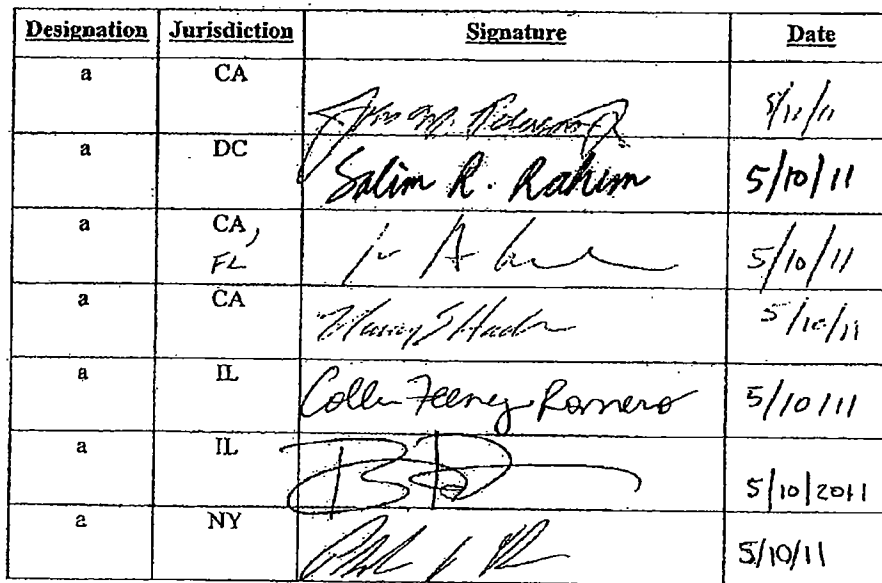 Designation Jurisdiction Signature Date
a CA 5/11/11
a DC Salim R. Rahim 5/10/11
a CA, 5/10/11
FL
a CA 5/10/11
a IL Feeney Romero 5/10/11
a IL 5/10/2011
a NY 5/10/11